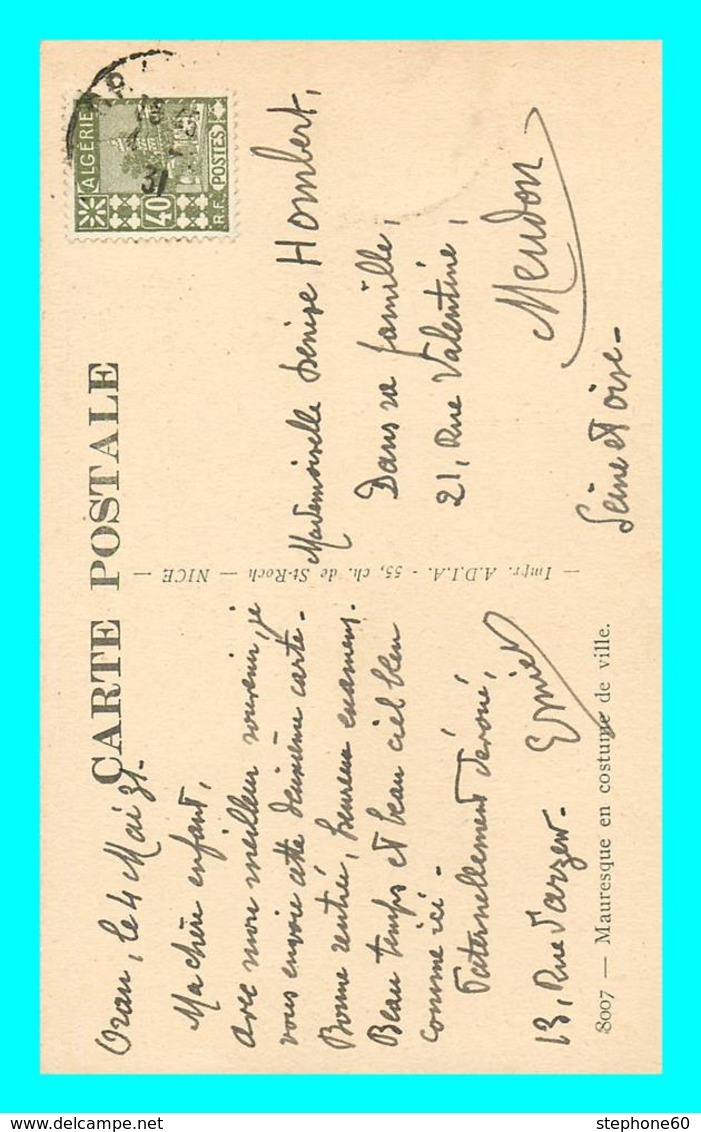 CARTE POSTALE
Oran, le 4 Mai 31.
Ma chère enfant,
Avec mon meilleur souvenir, je
vous envoie cette deuxième carte.
Bonne rentrée, heureux examens.
Beau temps et beau ciel bleu
comme ici.
Paternellement dévoué,
13, Rue d'arzew.
8007 — Mauresque en costume de ville.
— Impr. A.D.I.A. - 55, ch. de St-Roch — NICE —
ALGÉRIE
40
R.F. POSTES
31
Mademoiselle Denise Hombert,
Dans sa famille,
21, Rue Valentine,
Meudon
Seine et Oise -
stephone60